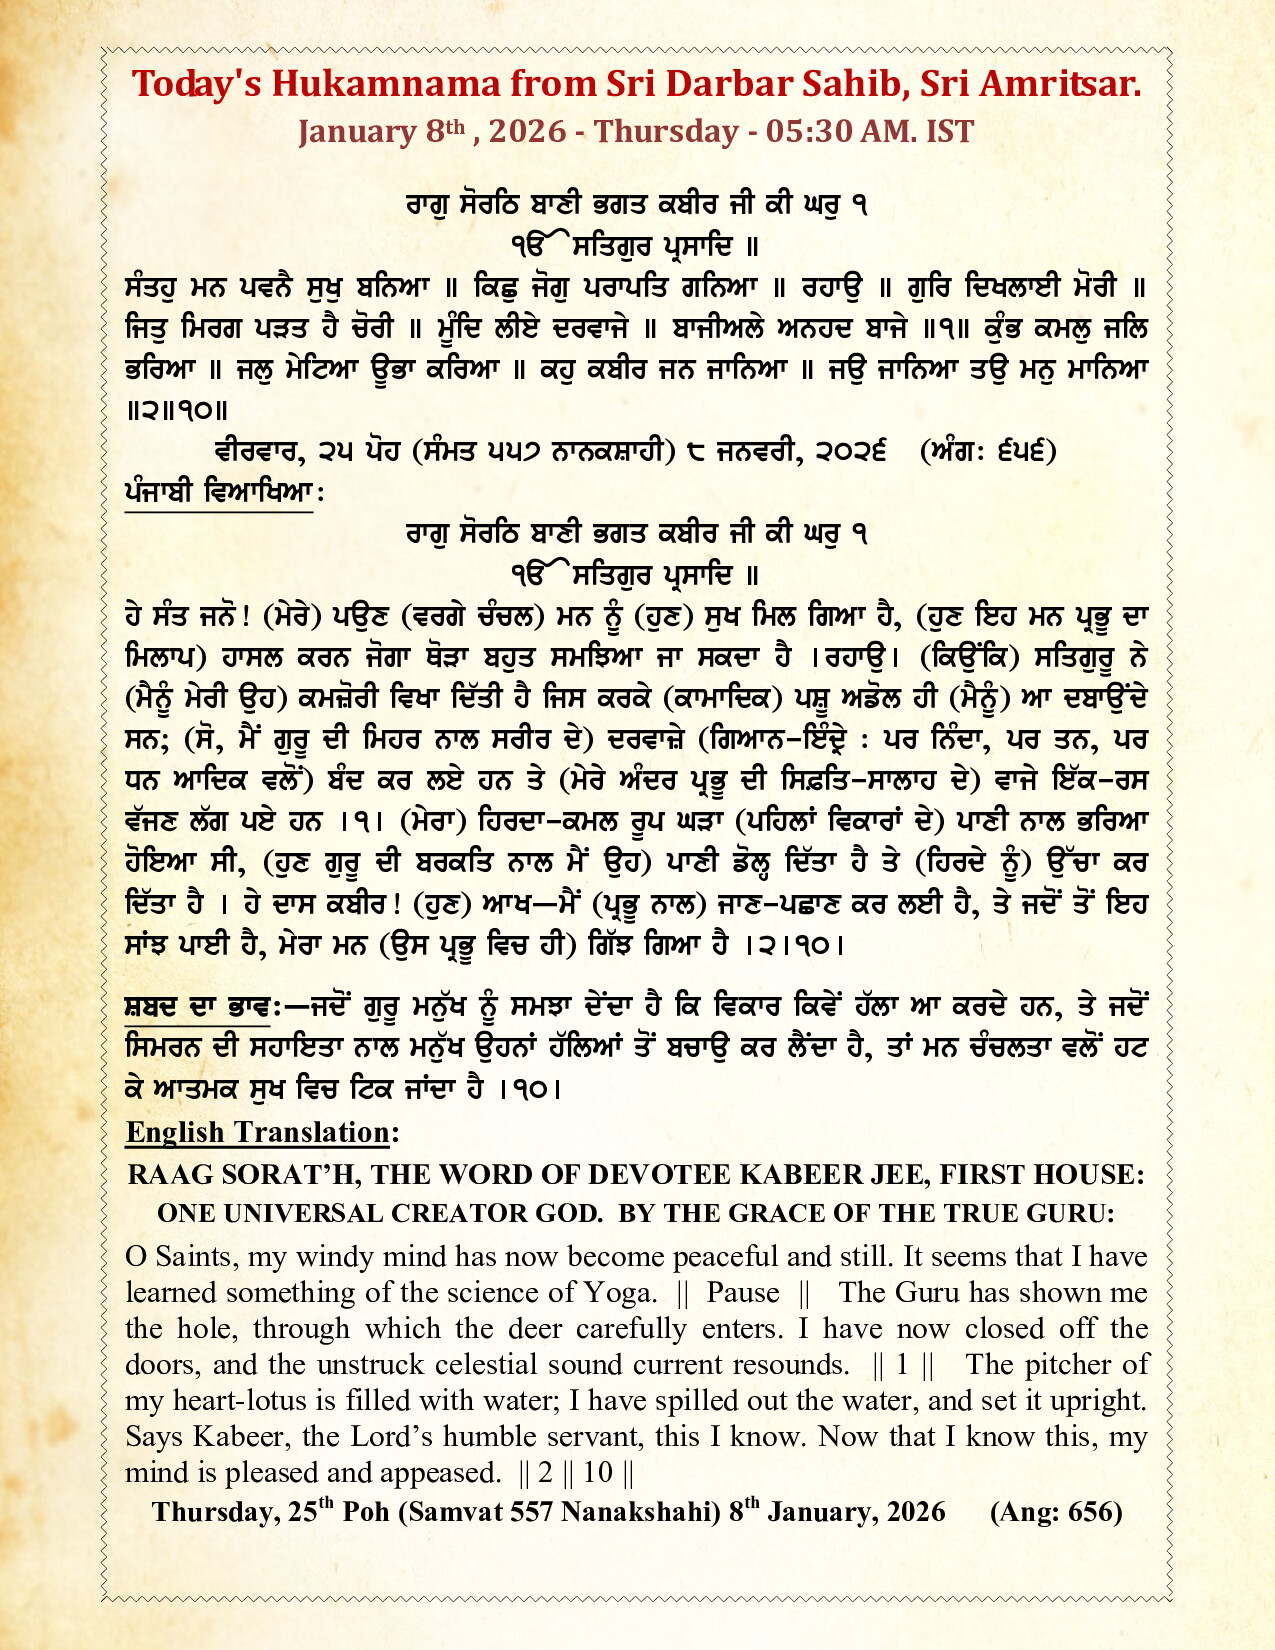 Today's Hukamnama from Sri Darbar Sahib, Sri Amritsar.
January 8th , 2026 - Thursday - 05:30 AM. IST
ਰਾਗੁ ਸੋਰਠਿ ਬਾਣੀ ਭਗਤ ਕਬੀਰ ਜੀ ਕੀ ਘਰੁ ੧
ੴ ਸਤਿਗੁਰ ਪ੍ਰਸਾਦਿ ॥
ਸੰਤਹੁ ਮਨ ਪਵਨੈ ਸੁਖੁ ਬਨਿਆ ॥ ਕਿਛੁ ਜੋਗੁ ਪਰਾਪਤਿ ਗਨਿਆ ॥ ਰਹਾਉ ॥ ਗੁਰਿ ਦਿਖਲਾਈ ਮੋਰੀ ॥
ਜਿਤੁ ਮਿਰਗ ਪੜਤ ਹੈ ਚੋਰੀ ॥ ਮੂੰਦਿ ਲੀਏ ਦਰਵਾਜੇ ॥ ਬਾਜੀਅਲੇ ਅਨਹਦ ਬਾਜੇ ॥੧॥ ਕੁੰਭ ਕਮਲੁ ਜਲਿ
ਭਰਿਆ ॥ ਜਲੁ ਮੇਟਿਆ ਊਭਾ ਕਰਿਆ ॥ ਕਹੁ ਕਬੀਰ ਜਨ ਜਾਨਿਆ ॥ ਜਉ ਜਾਨਿਆ ਤਉ ਮਨੁ ਮਾਨਿਆ
॥੨॥੧੦॥
ਵੀਰਵਾਰ, ੨੫ ਪੋਹ (ਸੰਮਤ ੫੫੭ ਨਾਨਕਸ਼ਾਹੀ) ੮ ਜਨਵਰੀ, ੨੦੨੬ (ਅੰਗ: ੬੫੬)
ਪੰਜਾਬੀ ਵਿਆਖਿਆ:
ਰਾਗੁ ਸੋਰਠਿ ਬਾਣੀ ਭਗਤ ਕਬੀਰ ਜੀ ਕੀ ਘਰੁ ੧
ੴ ਸਤਿਗੁਰ ਪ੍ਰਸਾਦਿ ॥
ਹੇ ਸੰਤ ਜਨੋ! (ਮੇਰੇ) ਪਉਣ (ਵਰਗੇ ਚੰਚਲ) ਮਨ ਨੂੰ (ਹੁਣ) ਸੁਖ ਮਿਲ ਗਿਆ ਹੈ, (ਹੁਣ ਇਹ ਮਨ ਪ੍ਰਭੂ ਦਾ
ਮਿਲਾਪ) ਹਾਸਲ ਕਰਨ ਜੋਗਾ ਥੋੜਾ ਬਹੁਤ ਸਮਝਿਆ ਜਾ ਸਕਦਾ ਹੈ ।ਰਹਾਉ। (ਕਿਉਂਕਿ) ਸਤਿਗੁਰੂ ਨੇ
(ਮੈਨੂੰ ਮੇਰੀ ਉਹ) ਕਮਜ਼ੋਰੀ ਵਿਖਾ ਦਿੱਤੀ ਹੈ ਜਿਸ ਕਰਕੇ (ਕਾਮਾਦਿਕ) ਪਸ਼ੂ ਅਡੋਲ ਹੀ (ਮੈਨੂੰ) ਆ ਦਬਾਉਂਦੇ
ਸਨ; (ਸੋ, ਮੈਂ ਗੁਰੂ ਦੀ ਮਿਹਰ ਨਾਲ ਸਰੀਰ ਦੇ) ਦਰਵਾਜ਼ੇ (ਗਿਆਨ-ਇੰਦ੍ਰੇ : ਪਰ ਨਿੰਦਾ, ਪਰ ਤਨ, ਪਰ
ਧਨ ਆਦਿਕ ਵਲੋਂ) ਬੰਦ ਕਰ ਲਏ ਹਨ ਤੇ (ਮੇਰੇ ਅੰਦਰ ਪ੍ਰਭੂ ਦੀ ਸਿਫ਼ਤਿ-ਸਾਲਾਹ ਦੇ) ਵਾਜੇ ਇੱਕ-ਰਸ
ਵੱਜਣ ਲੱਗ ਪਏ ਹਨ ।੧। (ਮੇਰਾ) ਹਿਰਦਾ-ਕਮਲ ਰੂਪ ਘੜਾ (ਪਹਿਲਾਂ ਵਿਕਾਰਾਂ ਦੇ) ਪਾਣੀ ਨਾਲ ਭਰਿਆ
ਹੋਇਆ ਸੀ, (ਹੁਣ ਗੁਰੂ ਦੀ ਬਰਕਤਿ ਨਾਲ ਮੈਂ ਉਹ) ਪਾਣੀ ਡੋਲ੍ਹ ਦਿੱਤਾ ਹੈ ਤੇ (ਹਿਰਦੇ ਨੂੰ) ਉੱਚਾ ਕਰ
ਦਿੱਤਾ ਹੈ । ਹੇ ਦਾਸ ਕਬੀਰ! (ਹੁਣ) ਆਖ—ਮੈਂ (ਪ੍ਰਭੂ ਨਾਲ) ਜਾਣ-ਪਛਾਣ ਕਰ ਲਈ ਹੈ, ਤੇ ਜਦੋਂ ਤੋਂ ਇਹ
ਸਾਂਝ ਪਾਈ ਹੈ, ਮੇਰਾ ਮਨ (ਉਸ ਪ੍ਰਭੂ ਵਿਚ ਹੀ) ਗਿੱਝ ਗਿਆ ਹੈ ।੨।੧੦।
ਸ਼ਬਦ ਦਾ ਭਾਵ:—ਜਦੋਂ ਗੁਰੂ ਮਨੁੱਖ ਨੂੰ ਸਮਝਾ ਦੇਂਦਾ ਹੈ ਕਿ ਵਿਕਾਰ ਕਿਵੇਂ ਹੱਲਾ ਆ ਕਰਦੇ ਹਨ, ਤੇ ਜਦੋਂ
ਸਿਮਰਨ ਦੀ ਸਹਾਇਤਾ ਨਾਲ ਮਨੁੱਖ ਉਹਨਾਂ ਹੱਲਿਆਂ ਤੋਂ ਬਚਾਉ ਕਰ ਲੈਂਦਾ ਹੈ, ਤਾਂ ਮਨ ਚੰਚਲਤਾ ਵਲੋਂ ਹਟ
ਕੇ ਆਤਮਕ ਸੁਖ ਵਿਚ ਟਿਕ ਜਾਂਦਾ ਹੈ ।੧੦।
English Translation:
RAAG SORAT’H, THE WORD OF DEVOTEE KABEER JEE, FIRST HOUSE:
ONE UNIVERSAL CREATOR GOD. BY THE GRACE OF THE TRUE GURU:
O Saints, my windy mind has now become peaceful and still. It seems that I have
learned something of the science of Yoga. || Pause || The Guru has shown me
the hole, through which the deer carefully enters. I have now closed off the
doors, and the unstruck celestial sound current resounds. || 1 || The pitcher of
my heart-lotus is filled with water; I have spilled out the water, and set it upright.
Says Kabeer, the Lord’s humble servant, this I know. Now that I know this, my
mind is pleased and appeased. || 2 || 10 ||
Thursday, 25th Poh (Samvat 557 Nanakshahi) 8th January, 2026 (Ang: 656)